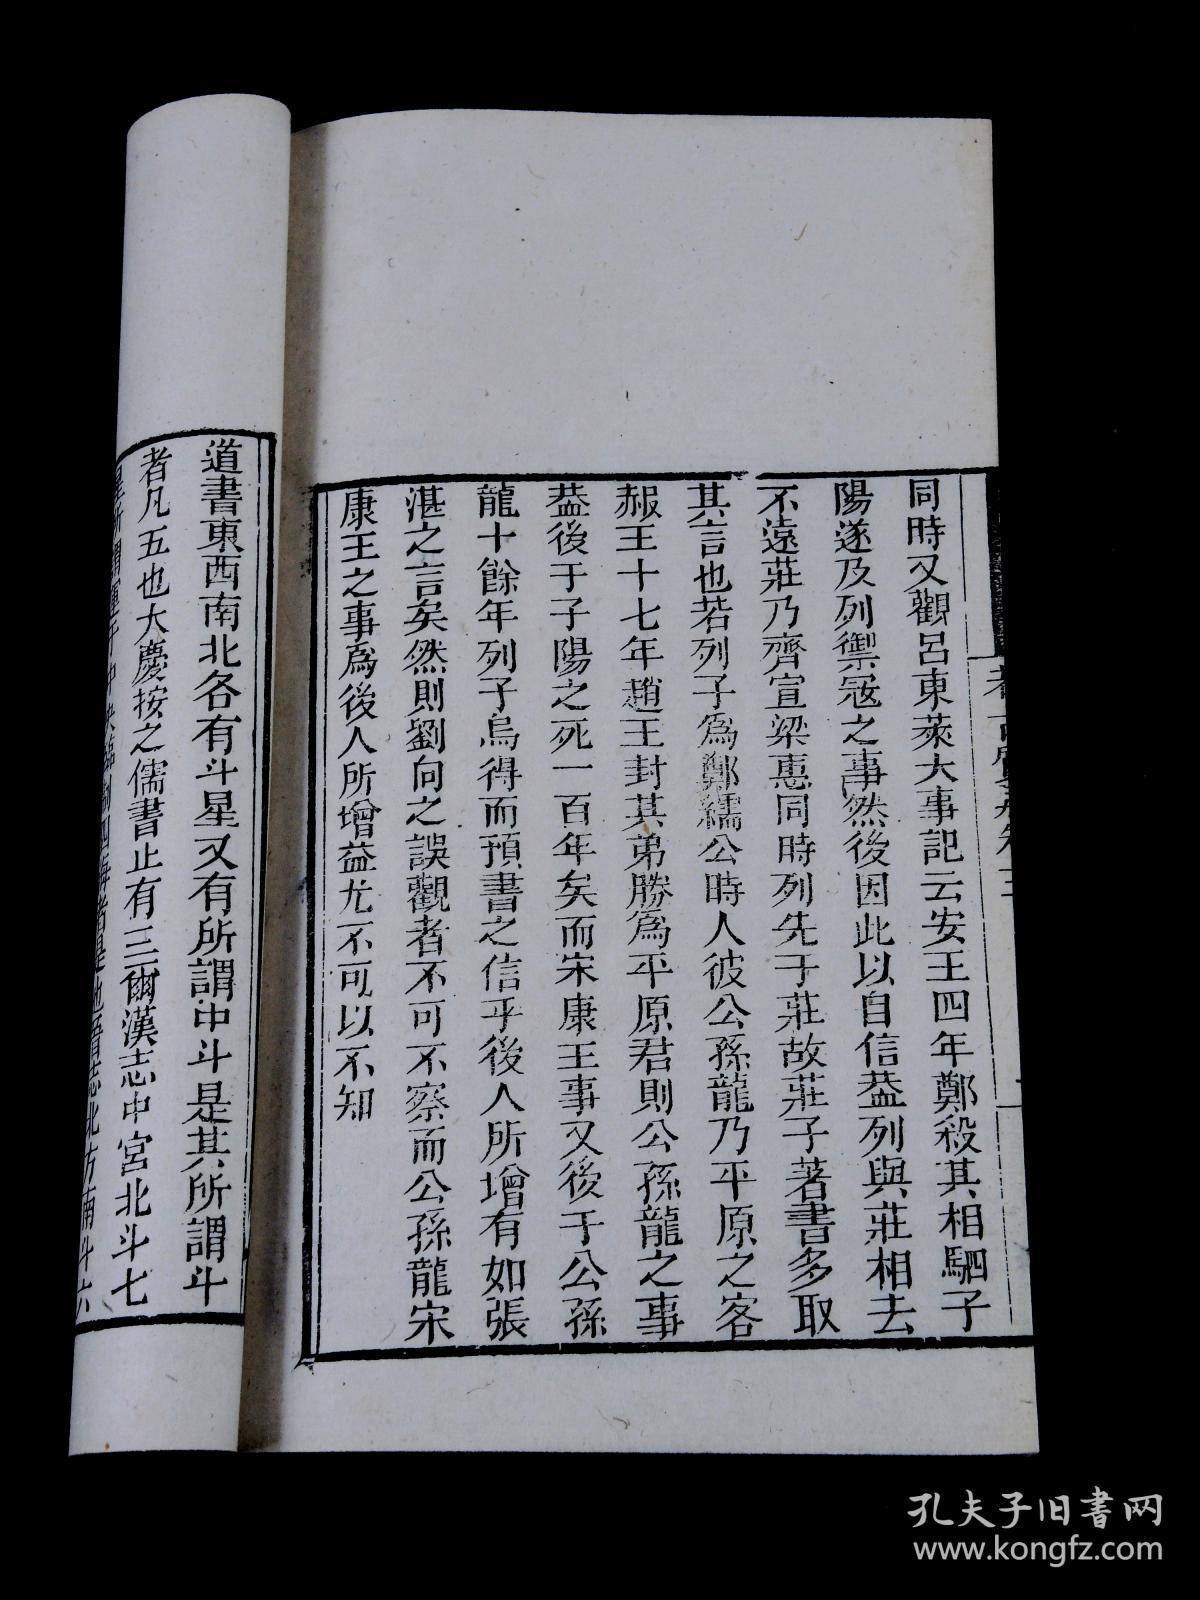 同時又觀呂東萊大事記云安王四年鄭殺其相駟子
陽遂及列禦寇之事然後因此以自信葢列與莊相去
不遠莊乃齊宣梁惠同時列先于莊故莊子著書多取
其言也若列子爲鄭繻公時人彼公孫龍乃平原之客
赧王十七年趙王封其弟勝爲平原君則公孫龍之事
葢後于子陽之死一百年矣而宋康王事又後于公孫
龍十餘年列子烏得而預書之信乎後人所增有如張
湛之言矣然則劉向之誤觀者不可不察而公孫龍宋
康王之事爲後人所增益尤不可以不知
道書東西南北各有斗星又有所謂中斗是其所謂斗
者凡五也大慶按之儒書止有三爾漢志中宮北斗七
星所謂運于中央臨制四海者是也晉志北方南斗六
孔夫子旧書网
www.kongfz.com